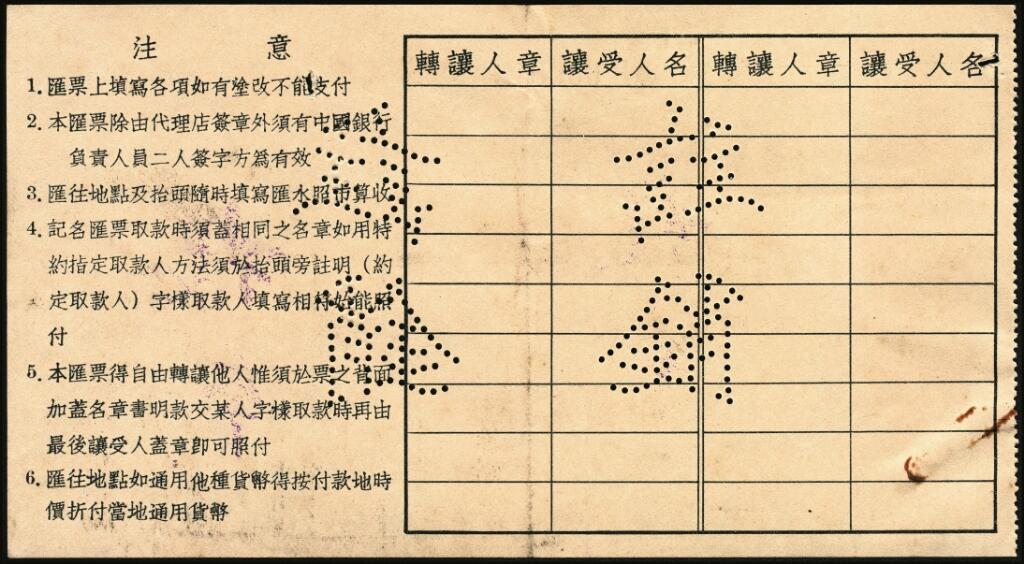 注意
1. 匯票上填寫各項如有塗改不能支付
2. 本匯票除由代理店簽章外須有中國銀行
負責人員二人簽字方爲有效
3. 匯往地點及抬頭隨時填寫匯水照市算收
4. 記名匯票取款時須蓋相同之名章如用特
約指定取款人方法須於抬頭旁註明（約
定取款人）字樣取款人填寫相符始能照
付
5. 本匯票得自由轉讓他人惟須於票之背面
加蓋名章書明款交某人字樣取款時再由
最後讓受人蓋章卽可照付
6. 匯往地點如通用他種貨幣得按付款地時
價折付當地通用貨幣
轉讓人章 讓受人名 轉讓人章 讓受人名